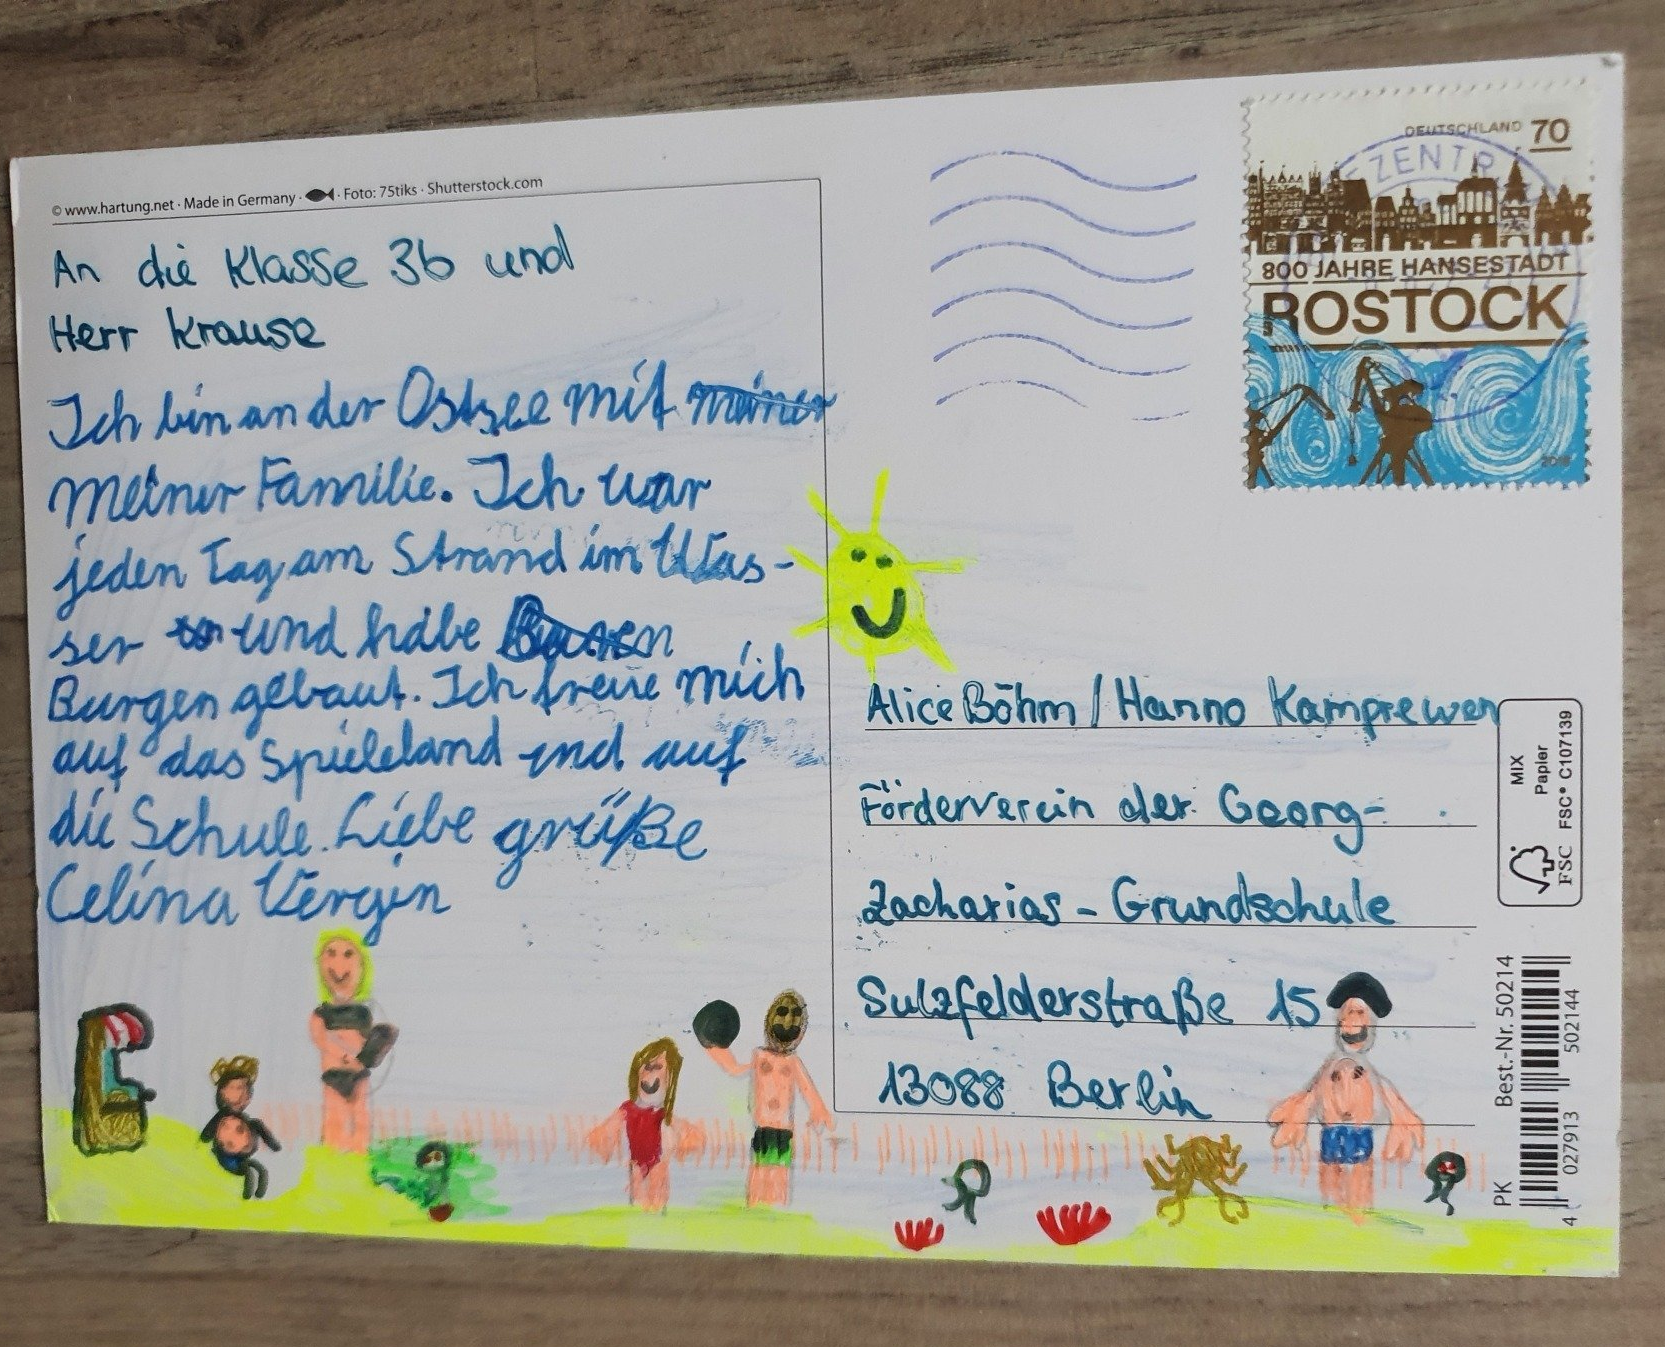 © www.hartung.net · Made in Germany · · Foto: 75tiks · Shutterstock.com
An die Klasse 3b und
Herr Krause
Ich bin an der Ostsee mit meiner
meiner Familie. Ich war
jeden Tag am Strand im Was-
ser und habe
Burgen gebaut. Ich freue mich
auf das Spieleland und auf
die Schule. Liebe grüße
Celina Vergin
DEUTSCHLAND 70
ZENTR
800 JAHRE HANSESTADT
ROSTOCK
Alice Böhm / Hanno Kamprewen
Förderverein der Georg-
Zacharias - Grundschule
Sulzfelderstraße 15
13088 Berlin
MIX
Papier
FSC FSC® C107139
PK Best.-Nr. 50214
4 027913 502144